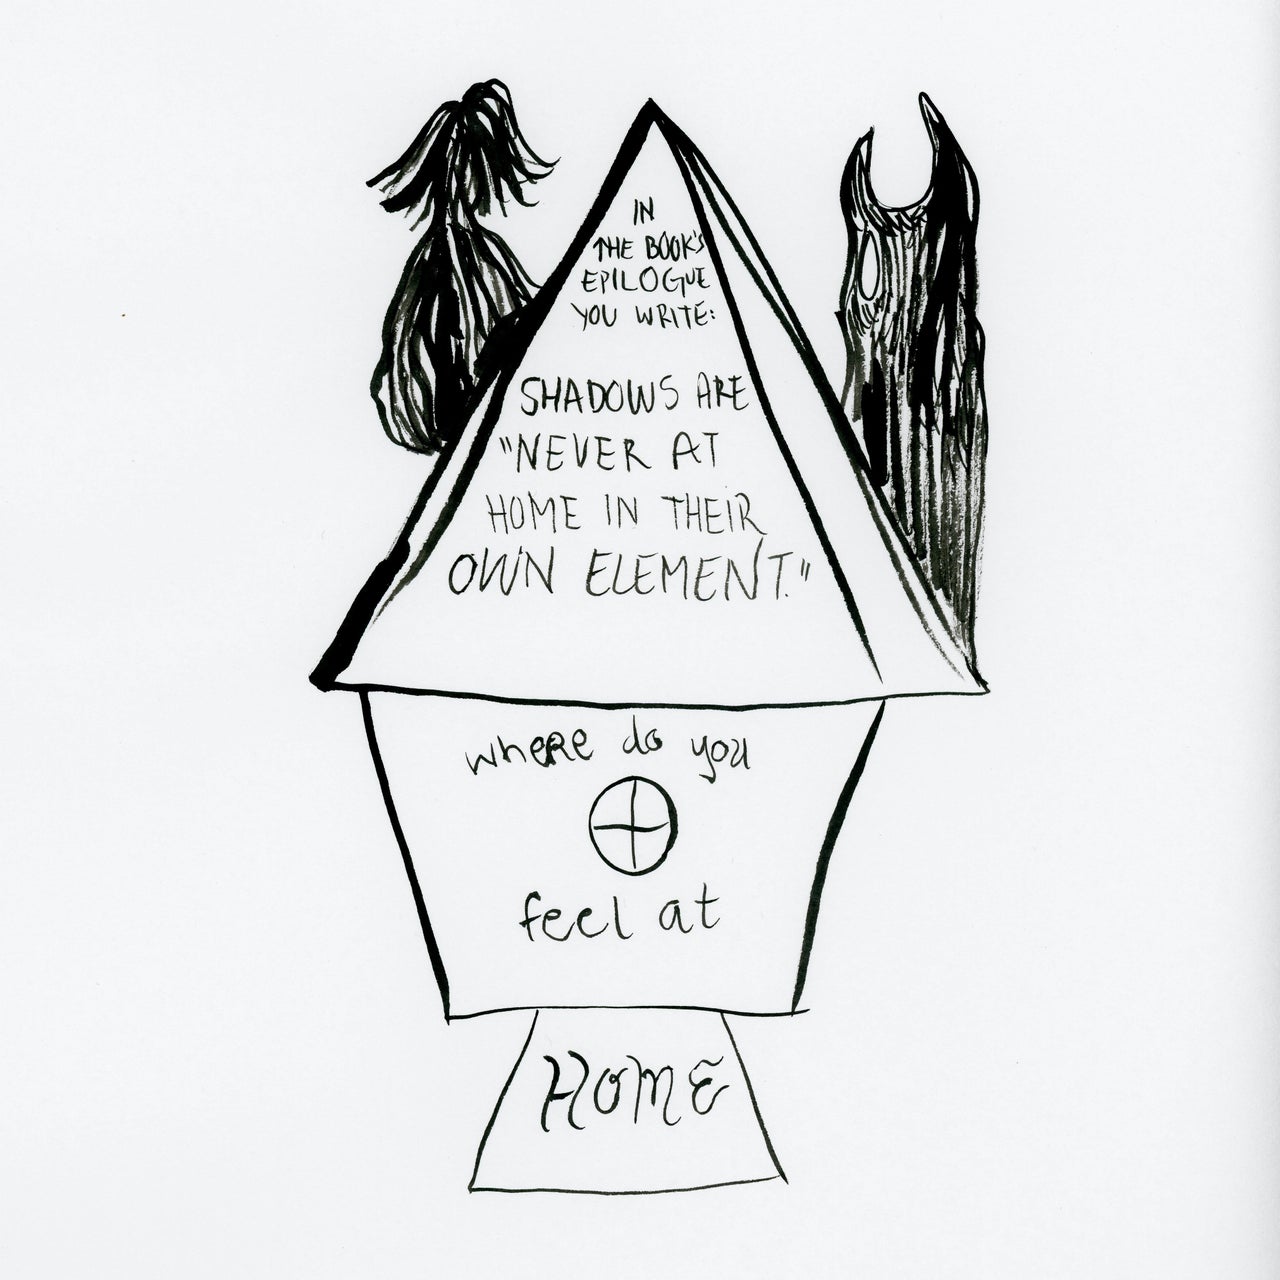 IN
THE BOOK'S
EPILOGUE
YOU WRITE:
SHADOWS ARE
"NEVER AT
HOME IN THEIR
OWN ELEMENT."
where do you
feel at
HOME